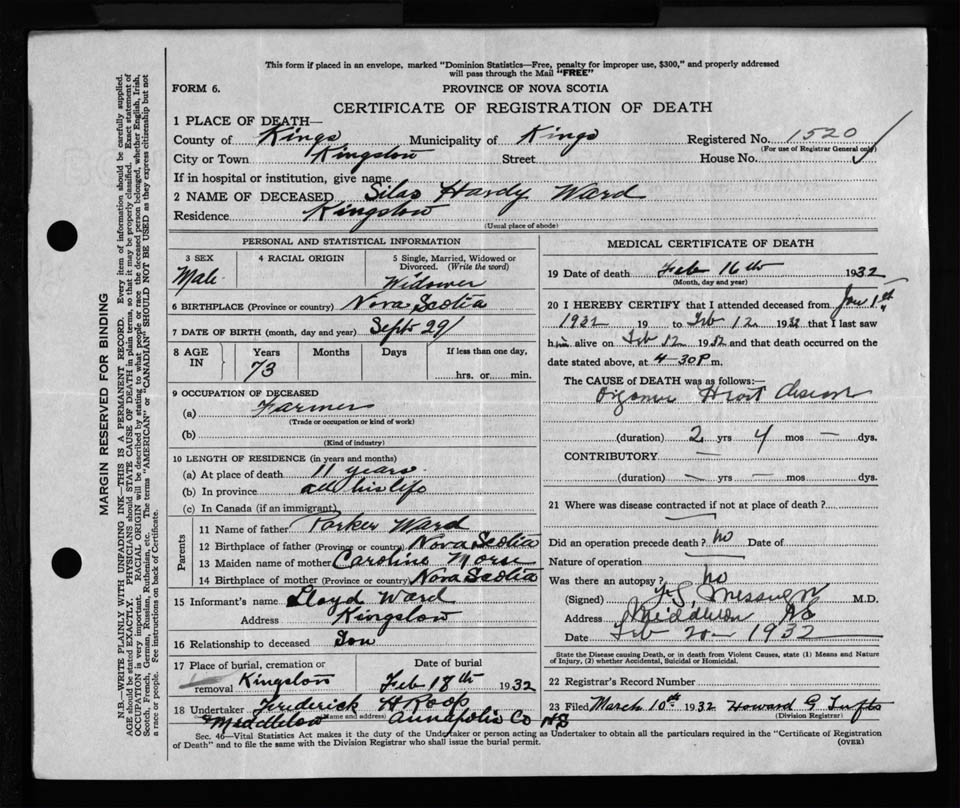 This form if placed in an envelope, marked "Dominion Statistics—Free, penalty for improper use, $300," and properly addressed
will pass through the Mail "FREE"
FORM 6.
PROVINCE OF NOVA SCOTIA
CERTIFICATE OF REGISTRATION OF DEATH
1 PLACE OF DEATH—
County of Kings Municipality of Kings Registered No. 1520
(For use of Registrar General only)
City or Town Kingston Street House No.
If in hospital or institution, give name
2 NAME OF DECEASED Silas Hardy Ward
Residence Kingston
(Usual place of abode)
PERSONAL AND STATISTICAL INFORMATION
3 SEX 4 RACIAL ORIGIN 5 Single, Married, Widowed or
Divorced. (Write the word)
Male Widower
6 BIRTHPLACE (Province or country) Nova Scotia
7 DATE OF BIRTH (month, day and year) Sept 29
8 AGE IN Years Months Days If less than one day,
73 hrs. or min.
9 OCCUPATION OF DECEASED
(a) Farmer
(Trade or occupation or kind of work)
(b)
(Kind of industry)
10 LENGTH OF RESIDENCE (in years and months)
(a) At place of death 11 years
(b) In province all his life
(c) In Canada (if an immigrant)
Parents
11 Name of father Parker Ward
12 Birthplace of father (Province or country) Nova Scotia
13 Maiden name of mother Caroline Morse
14 Birthplace of mother (Province or country) Nova Scotia
15 Informant's name Lloyd Ward
Address Kingston
16 Relationship to deceased Son
17 Place of burial, cremation or Date of burial
removal Kingston Feb 18th 1932
18 Undertaker Frederick H Roop
(Name and address)
Middleton Annapolis Co NS
MEDICAL CERTIFICATE OF DEATH
19 Date of death Feb 16th 1932
(Month, day and year)
20 I HEREBY CERTIFY that I attended deceased from Jan 1st
1932 19 to Feb 12 1932 that I last saw
him alive on Feb 12 1932 and that death occurred on the
date stated above, at 4-30 P m.
The CAUSE of DEATH was as follows:—
Organic Heart Disease
(duration) 2 yrs 4 mos — dys.
CONTRIBUTORY —
(duration) — yrs. — mos. dys.
21 Where was disease contracted if not at place of death?
Did an operation precede death? no Date of
Nature of operation
Was there an autopsy? no
(Signed) M.D.
Address Middleton NS
Date Feb 20 1932
State the Disease causing Death, or in death from Violent Causes, state (1) Means and Nature
of Injury, (2) whether Accidental, Suicidal or Homicidal.
22 Registrar's Record Number
23 Filed March 10th 1932 Howard G Tufts
(Division Registrar)
Sec. 46—Vital Statistics Act makes it the duty of the Undertaker or person acting as Undertaker to obtain all the particulars required in the "Certificate of Registration
of Death" and to file the same with the Division Registrar who shall issue the burial permit.
(OVER)
MARGIN RESERVED FOR BINDING
N.B.—WRITE PLAINLY WITH UNFADING INK—THIS IS A PERMANENT RECORD. Every item of information should be carefully supplied.
AGE should be stated EXACTLY. PHYSICIANS should STATE CAUSE OF DEATH in plain terms, so that it may be properly classified. Exact statement of
OCCUPATION is very important. RACIAL ORIGIN will be described by stating to what people or race the deceased person belonged, whether English, Irish,
Scotch, French, German, Russian, Ruthenian, etc. The terms "AMERICAN" or "CANADIAN" SHOULD NOT BE USED as they express citizenship but not
a race or people. See instructions on back of Certificate.